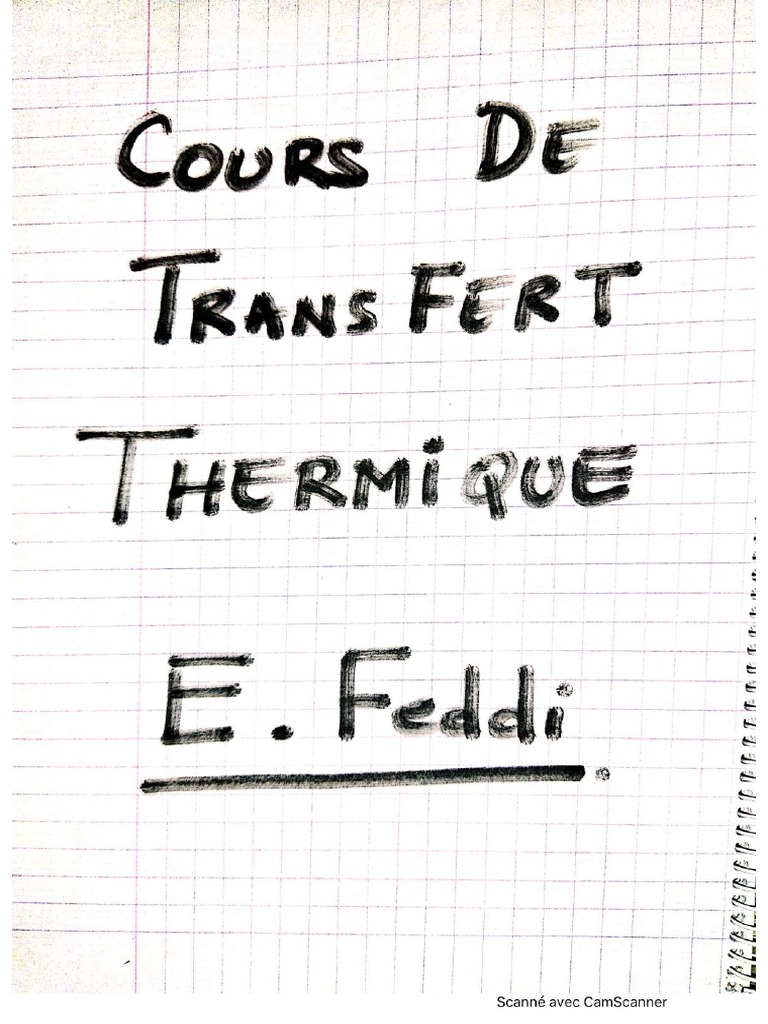 COURS DE
TRANSFERT
THERMiQUE
E. Feddi
Scanné avec CamScanner